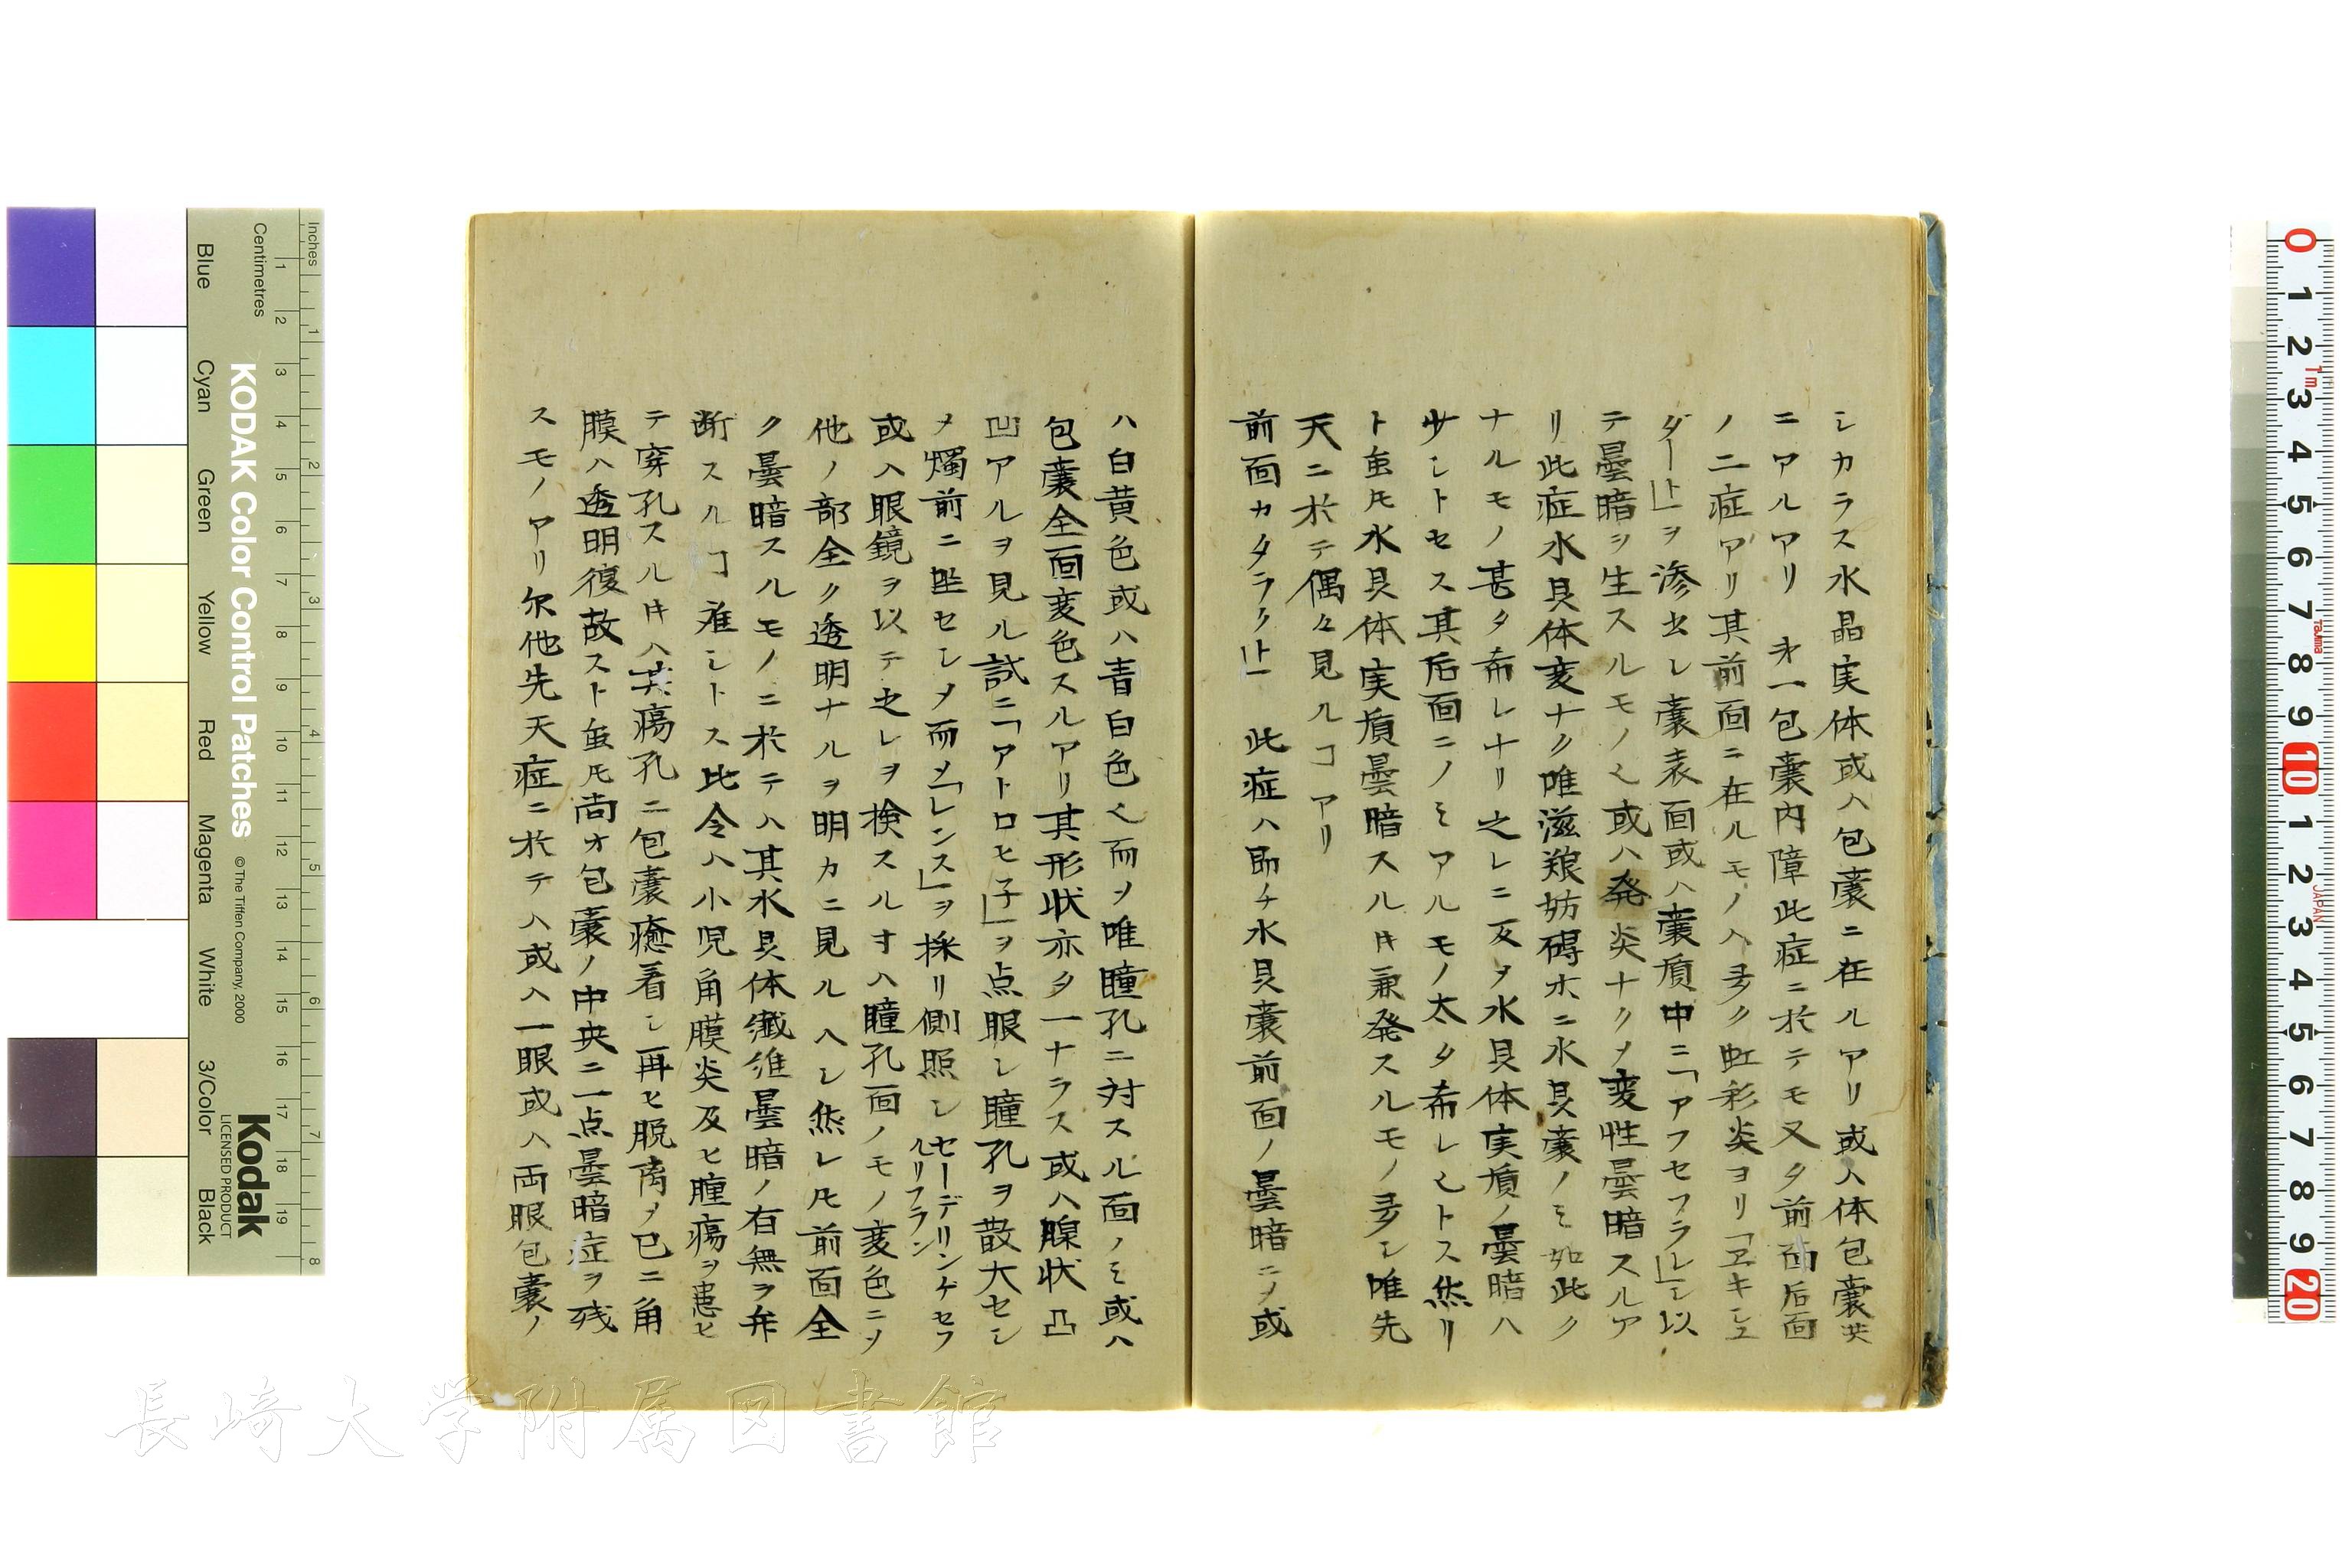 シカラス水晶実体或ハ包嚢ニ在ルアリ或ハ体包嚢共
ニアルアリ 第一包嚢内障此症ニ於テモ又タ前面后面
ノ二症アリ其前面ニ在ルモノハ多ク虹彩炎ヨリ「ヱキシュ
ダート」ヲ滲出シ嚢表面或ハ嚢質中ニ「アフセフラレ」ニ以
テ曇暗ヲ生スルモノ也或ハ発炎ナクメ変性曇暗スルア
リ此症水晶体変ナク唯滋粮妨碍ホニ水晶嚢ノミ如此ク
ナルモノ甚タ希レナリ之レニ反ヲ水晶体実質ノ曇暗ハ
少シトセス其后面ニノミアルモノ太タ希レ也トス然リ
ト虽𪜈水晶体実質曇暗スル𪜈兼発スルモノ多シ唯先
天ニ於テ偶々見ルヿアリ
前面カタラクト 此症ハ即チ水晶嚢前面ノ曇暗ニメ或
ハ白黄色或ハ青白色也而メ唯瞳孔ニ対スル面ノミ或ハ
包嚢全面変色スルアリ其形状亦タ一ナラス或ハ腺状凸
凹アルヲ見ル試ニ「アトロヒ子」ヲ点眼シ瞳孔ヲ散大セシ
メ燭前ニ坐セシメ而メ「レンス」ヲ採リ側照シセーデリンゲセフ
ルリフラン
或ハ眼鏡ヲ以テ之レヲ検スル寸ハ瞳孔面ノモノ変色ニメ
他ノ部全ク透明ナルヲ明カニ見ルヘシ然レ𪜈前面全
ク曇暗スルモノニ於テハ其水晶体繊維曇暗ノ有無ヲ弁
断スルヿ難シトス比令ハ小児角膜炎及ヒ腫瘍ヲ患ヒ
テ穿孔スルキハ其瘍孔ニ包嚢癒着シ再ヒ脱离メ已ニ角
膜ハ透明復故スト虽𪜈尚オ包嚢ノ中央ニ一点曇暗症ヲ残
スモノアリ尓他先天症ニ於テハ或ハ一眼或ハ両眼包嚢ノ
Inches
Centimetres
KODAK Color Control Patches
© The Tiffen Company, 2000
Kodak
LICENSED PRODUCT
Blue
Cyan
Green
Yellow
Red
Magenta
White
3/Color
Black
長崎大学附属図書館